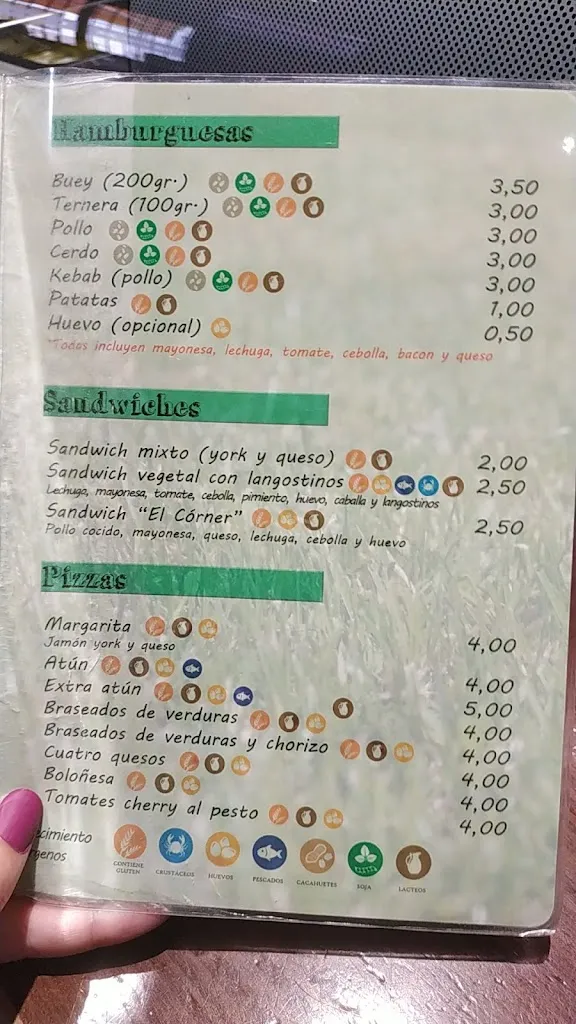 Hamburguesas
Buey (200gr.) 3,50
Ternera (100gr.) 3,00
Pollo 3,00
Cerdo 3,00
Kebab (pollo) 3,00
Patatas 1,00
Huevo (opcional) 0,50
*Todas incluyen mayonesa, lechuga, tomate, cebolla, bacon y queso
Sandwiches
Sandwich mixto (york y queso) 2,00
Sandwich vegetal con langostinos 2,50
Lechuga, mayonesa, tomate, cebolla, pimiento, huevo, caballa y langostinos
Sandwich "El Córner" 2,50
Pollo cocido, mayonesa, queso, lechuga, cebolla y huevo
Pizzas
Margarita 4,00
Jamón york y queso
Atún 4,00
Extra atún 5,00
Braseados de verduras 4,00
Braseados de verduras y chorizo 4,00
Cuatro quesos 4,00
Boloñesa 4,00
Tomates cherry al pesto 4,00
CONTIENE GLUTEN CRUSTÁCEOS HUEVOS PESCADOS CACAHUETES SOJA LÁCTEOS